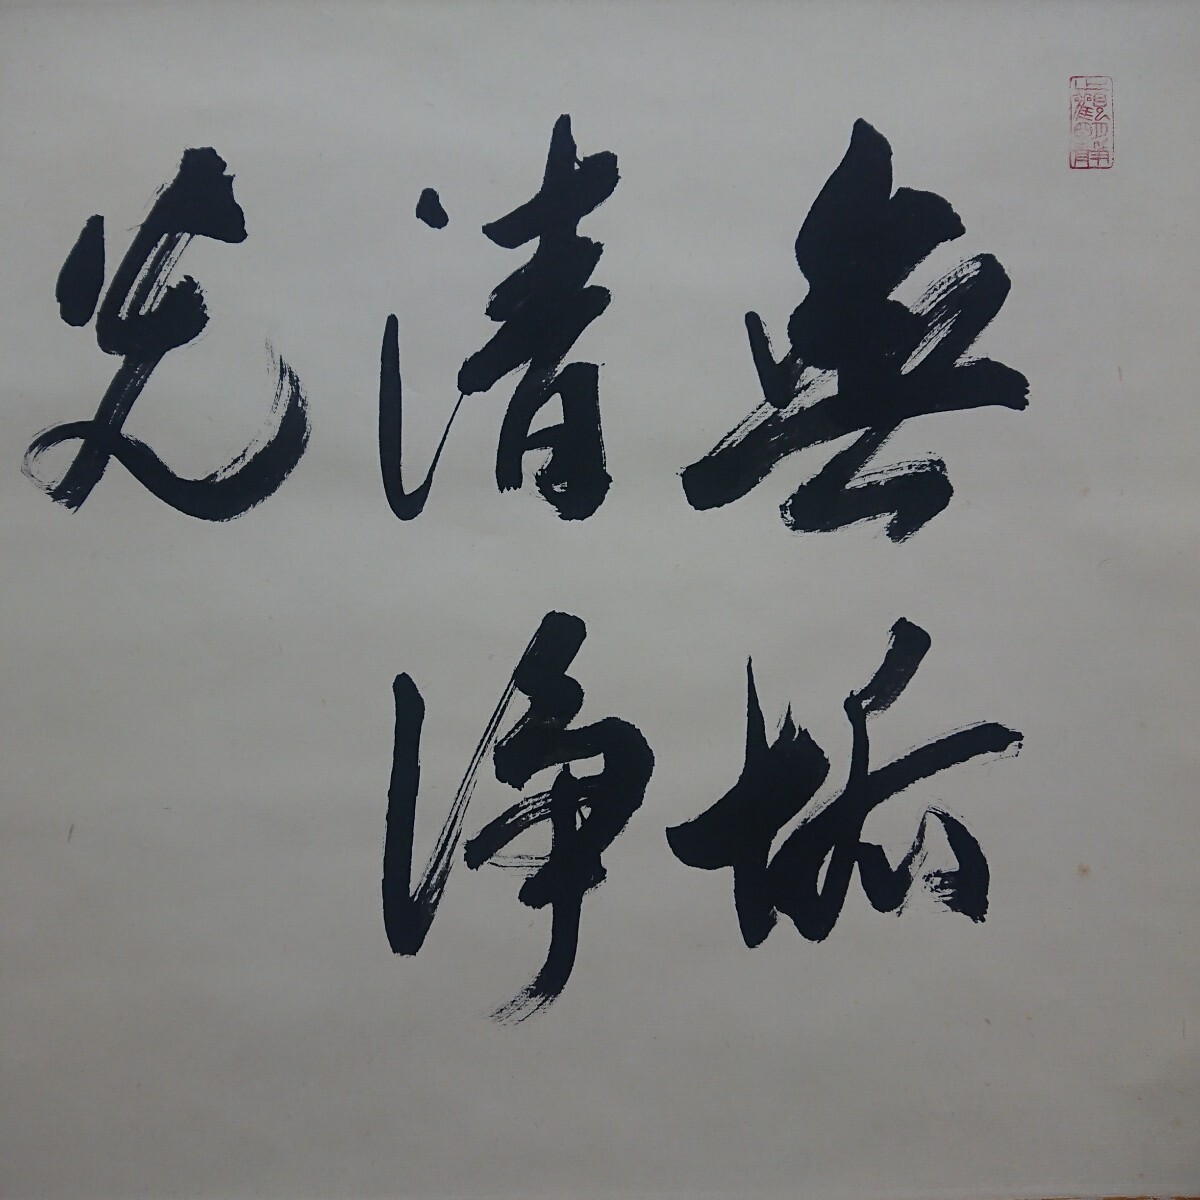 無垢
清浄
光